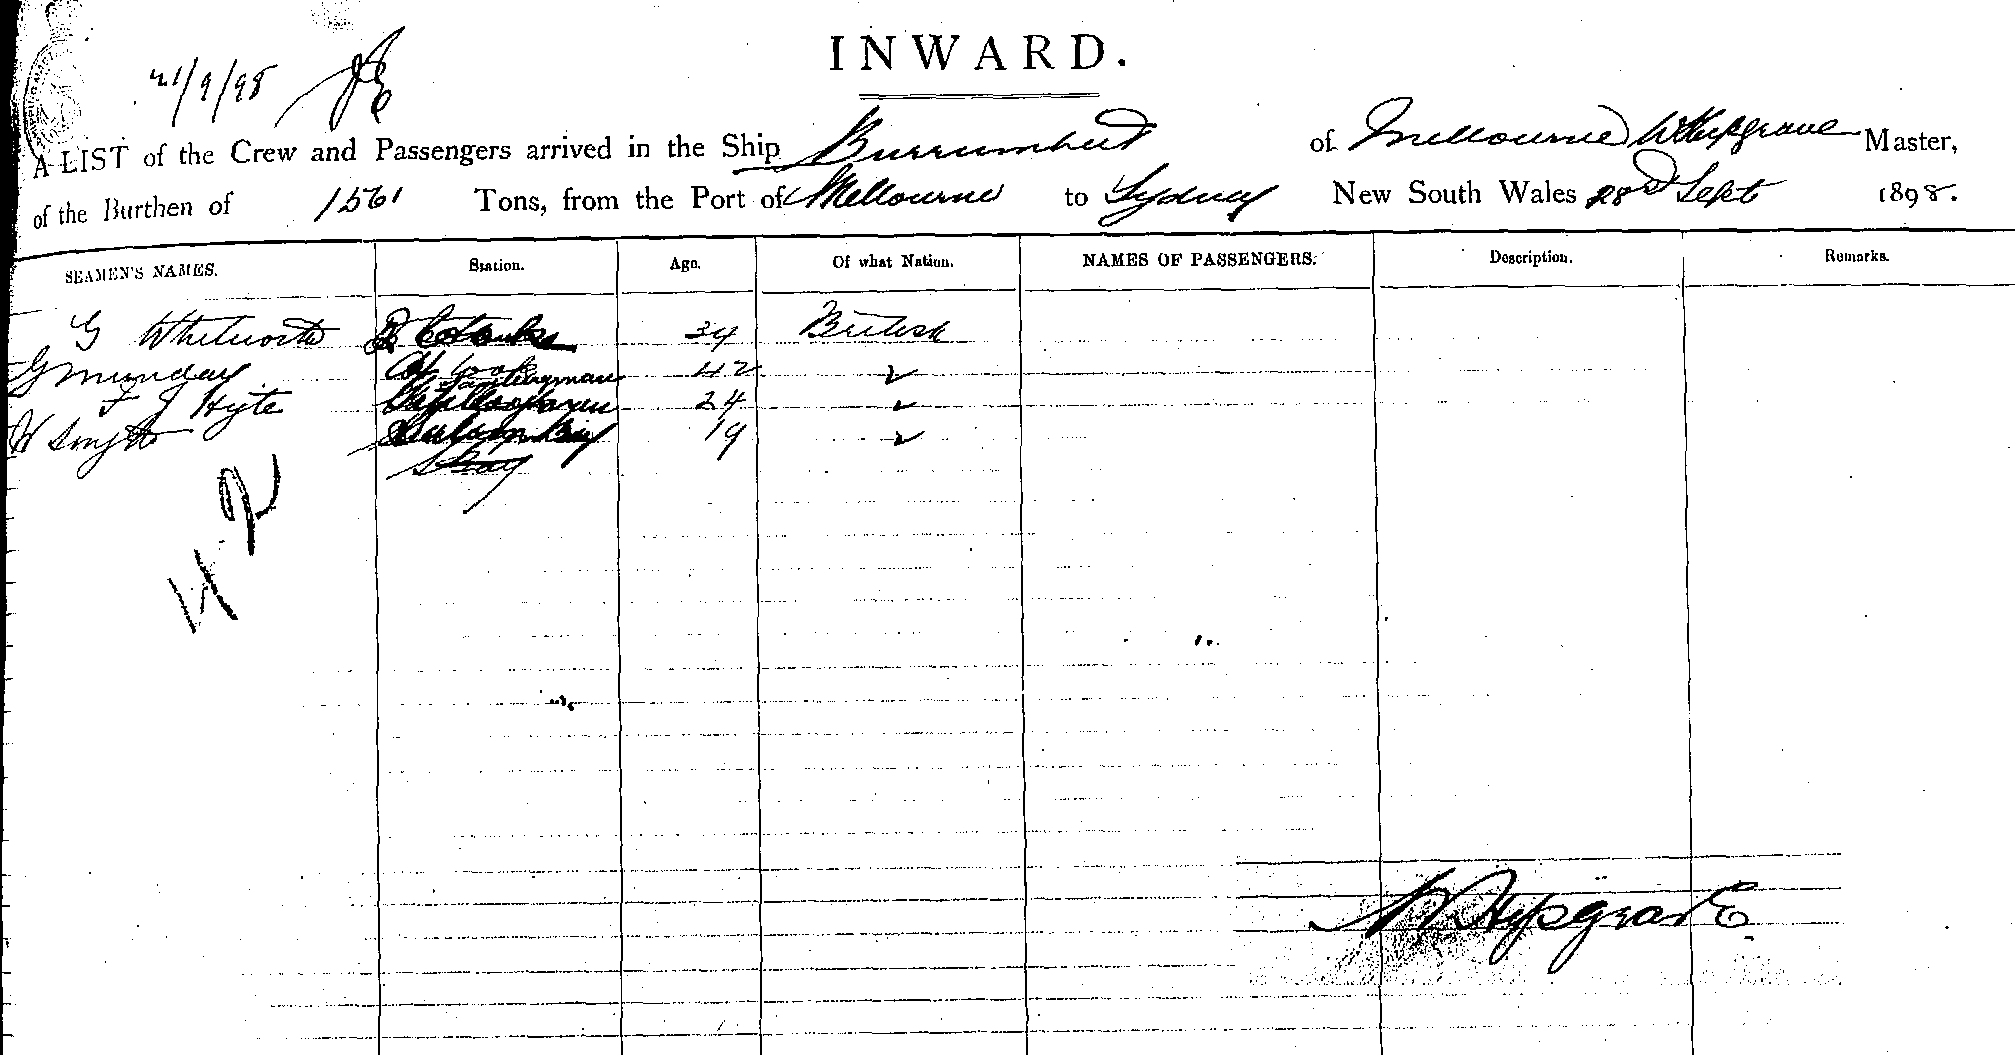 INWARD.
21/9/98
A LIST of the Crew and Passengers arrived in the Ship Burrumbeet of Melbourne W Hipgrave Master,
of the Burthen of 1561 Tons, from the Port of Melbourne to Sydney New South Wales Sept 1898.
SEAMEN'S NAMES. Station. Age. Of what Nation. NAMES OF PASSENGERS. Description. Remarks.
G Whitworth 34 British
G Munday Cook 42 ✓
F J Hyte 24 ✓
W Smyth 19 ✓
W Hipgrave